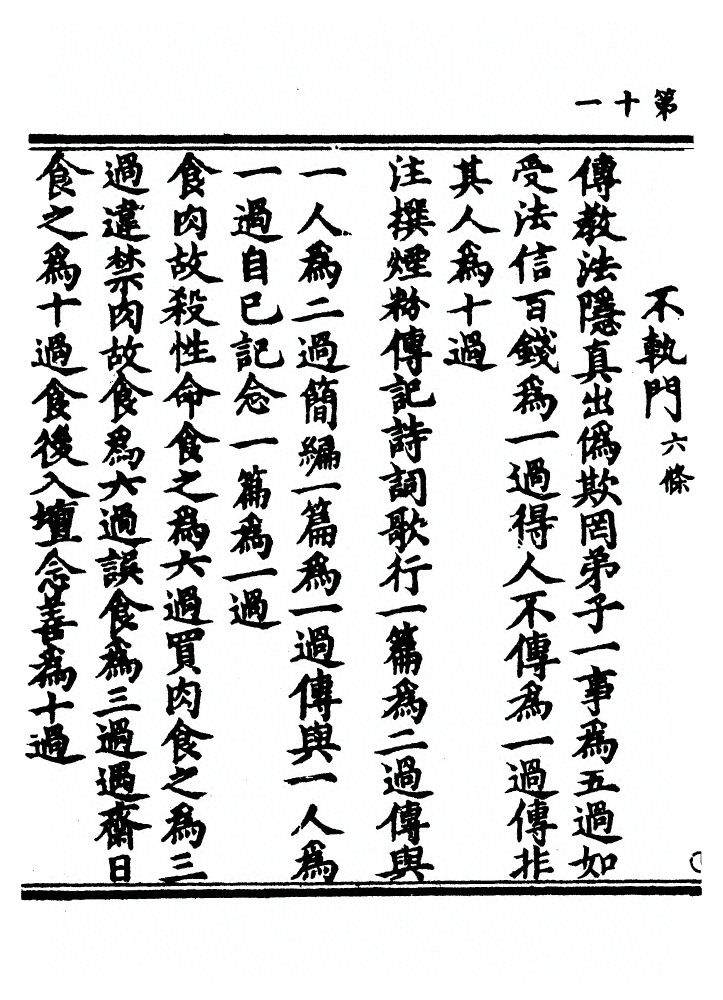 第十一
不執門六條
傳教法隱真出偽欺罔弟子一事為五過如
受法信百錢為一過得人不傳為一過傳非
其人為十過
注撰煙粉傳記詩詞歌行一篇為二過傳與
一人為二過簡編一篇為一過傳與一人為
一過自己記念一篇為一過
食肉故殺性命食之為六過買肉食之為三
過違禁肉故食為六過誤食為三過遇齋日
食之為十過食後入壇念善為十過